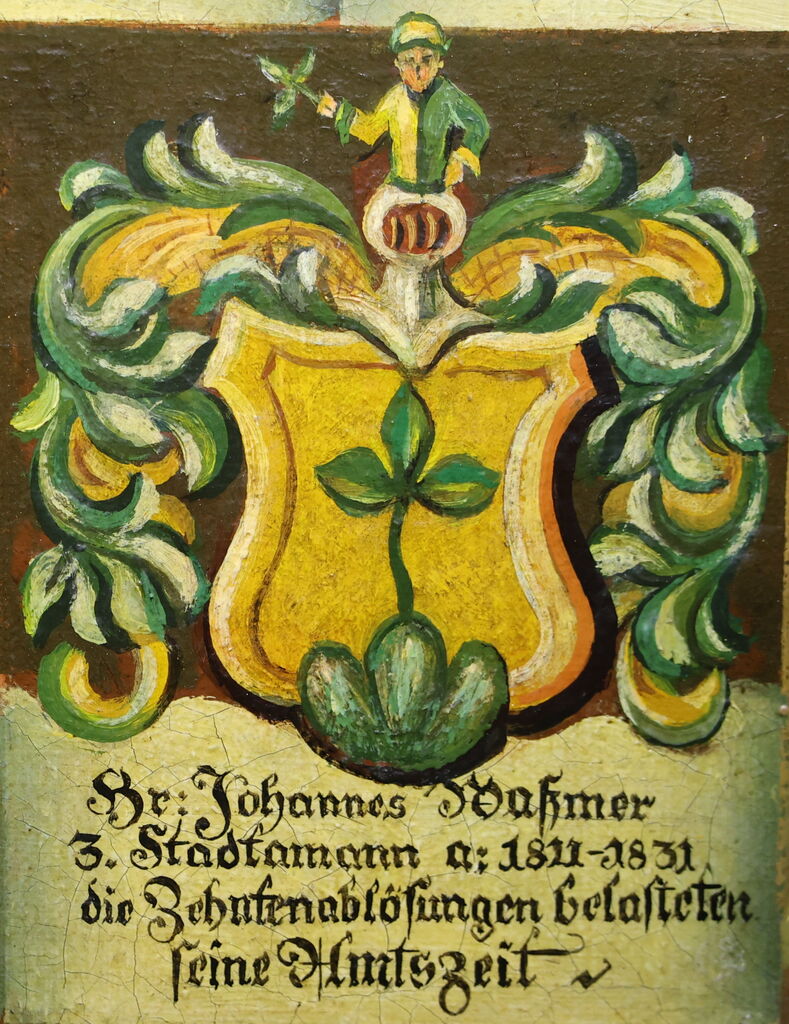 Hr: Johannes Waßmer
3. Stadtamann a: 1811-1831
die Zehntenablösungen belasteten
seine Amtszeit